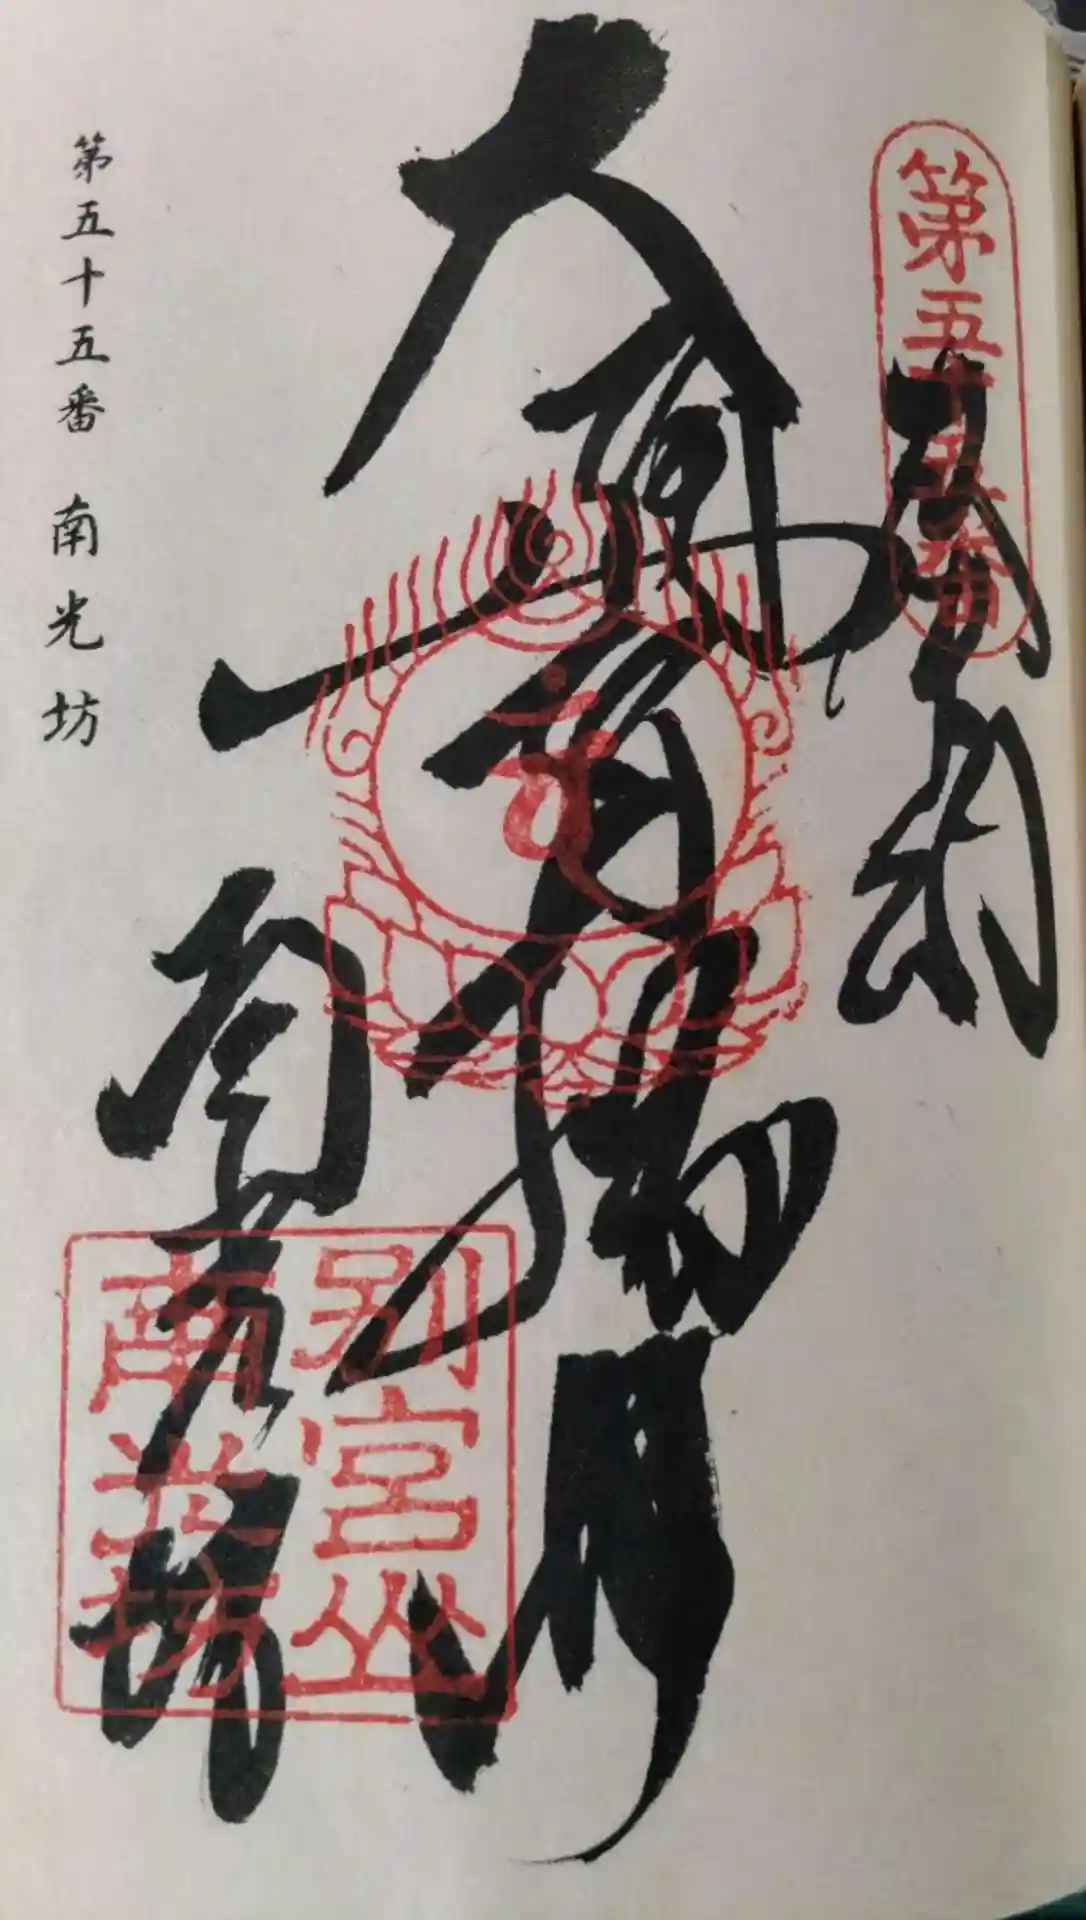 第五十五番
奉納
大通智勝佛
南光坊
別宮山
南光坊
第五十五番 南光坊